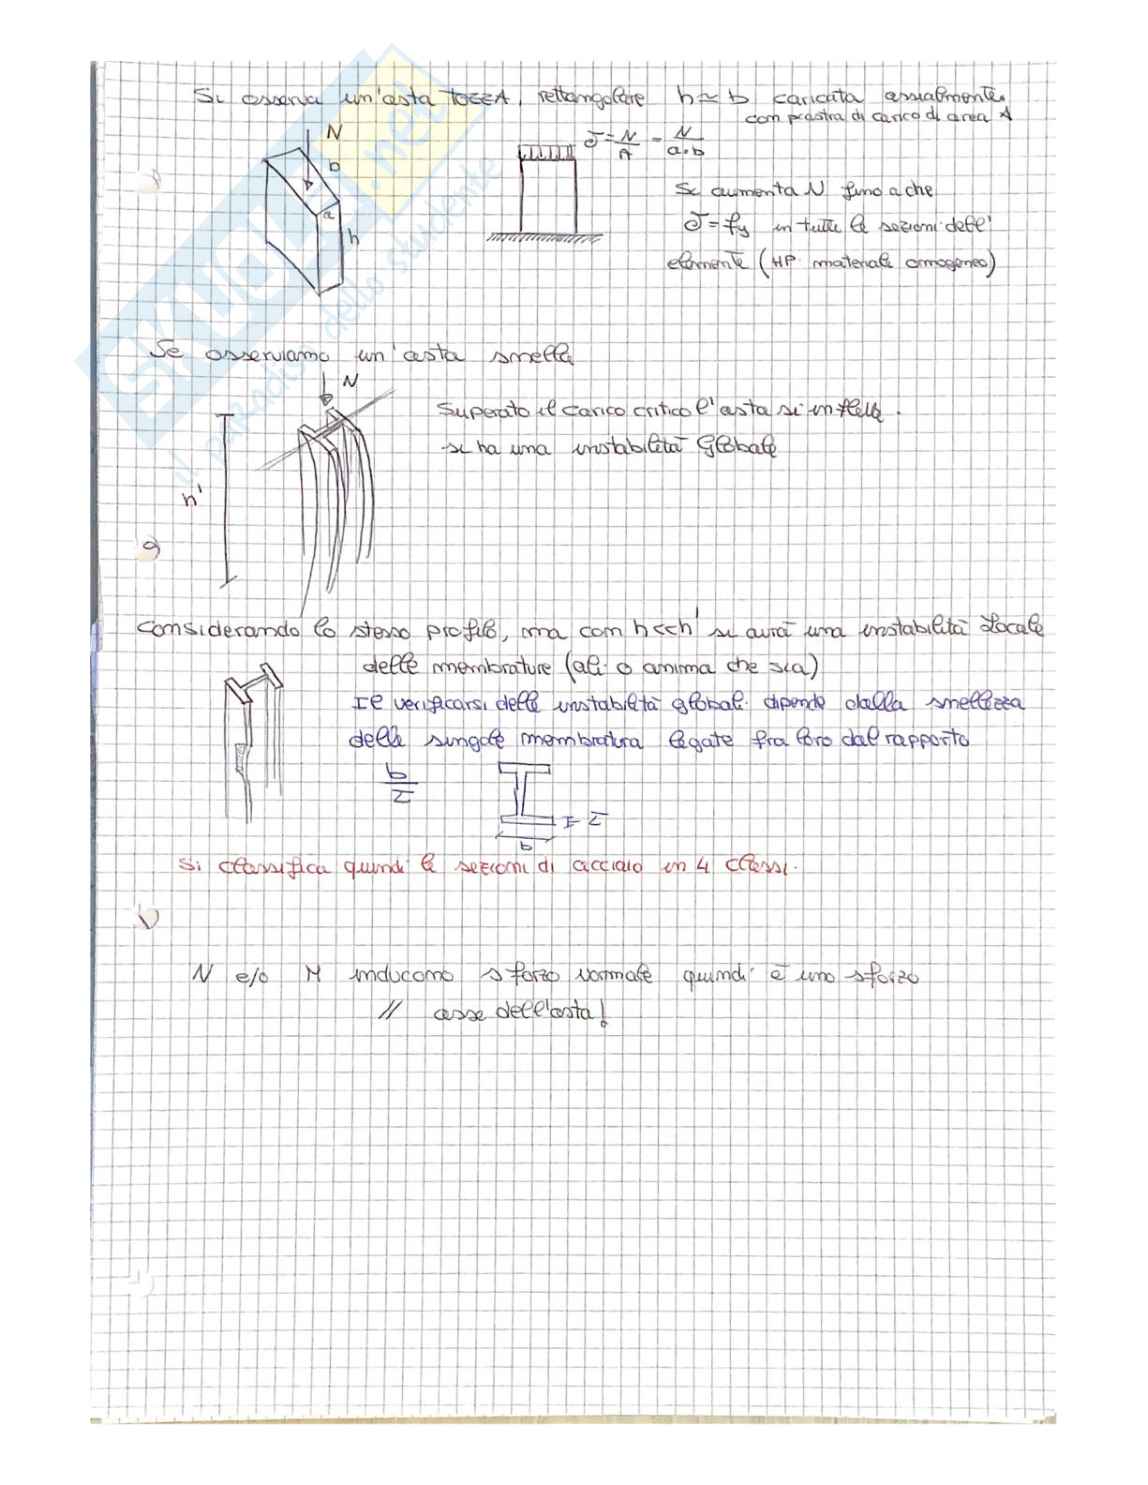 Si osserva un'asta TOZZA, rettangolare h≃b caricata assialmente
con piastra di carico di area A
N
b
a
h
σ = N/A = N/a·b
Si aumenta N fino a che
σ = fy in tutte le sezioni dell'
elemento (HP. materiale omogeneo)
SKUOLA.net
il paradiso dello studente
Se osserviamo un'asta snella
N
h'
Superato il carico critico l'asta si inflette.
si ha una instabilità Globale
Considerando lo stesso profilo, ma con h<<h' si avrà una instabilità Locale
delle membrature (ali o anima che sia)
Il verificarsi delle instabilità globali dipende dalla snellezza
della singole membratura legate fra loro dal rapporto
b/τ
τ
b
Si classifica quindi le sezioni di acciaio in 4 classi.
N e/o M inducono sforzo normale quindi è uno sforzo
// asse dell'asta!